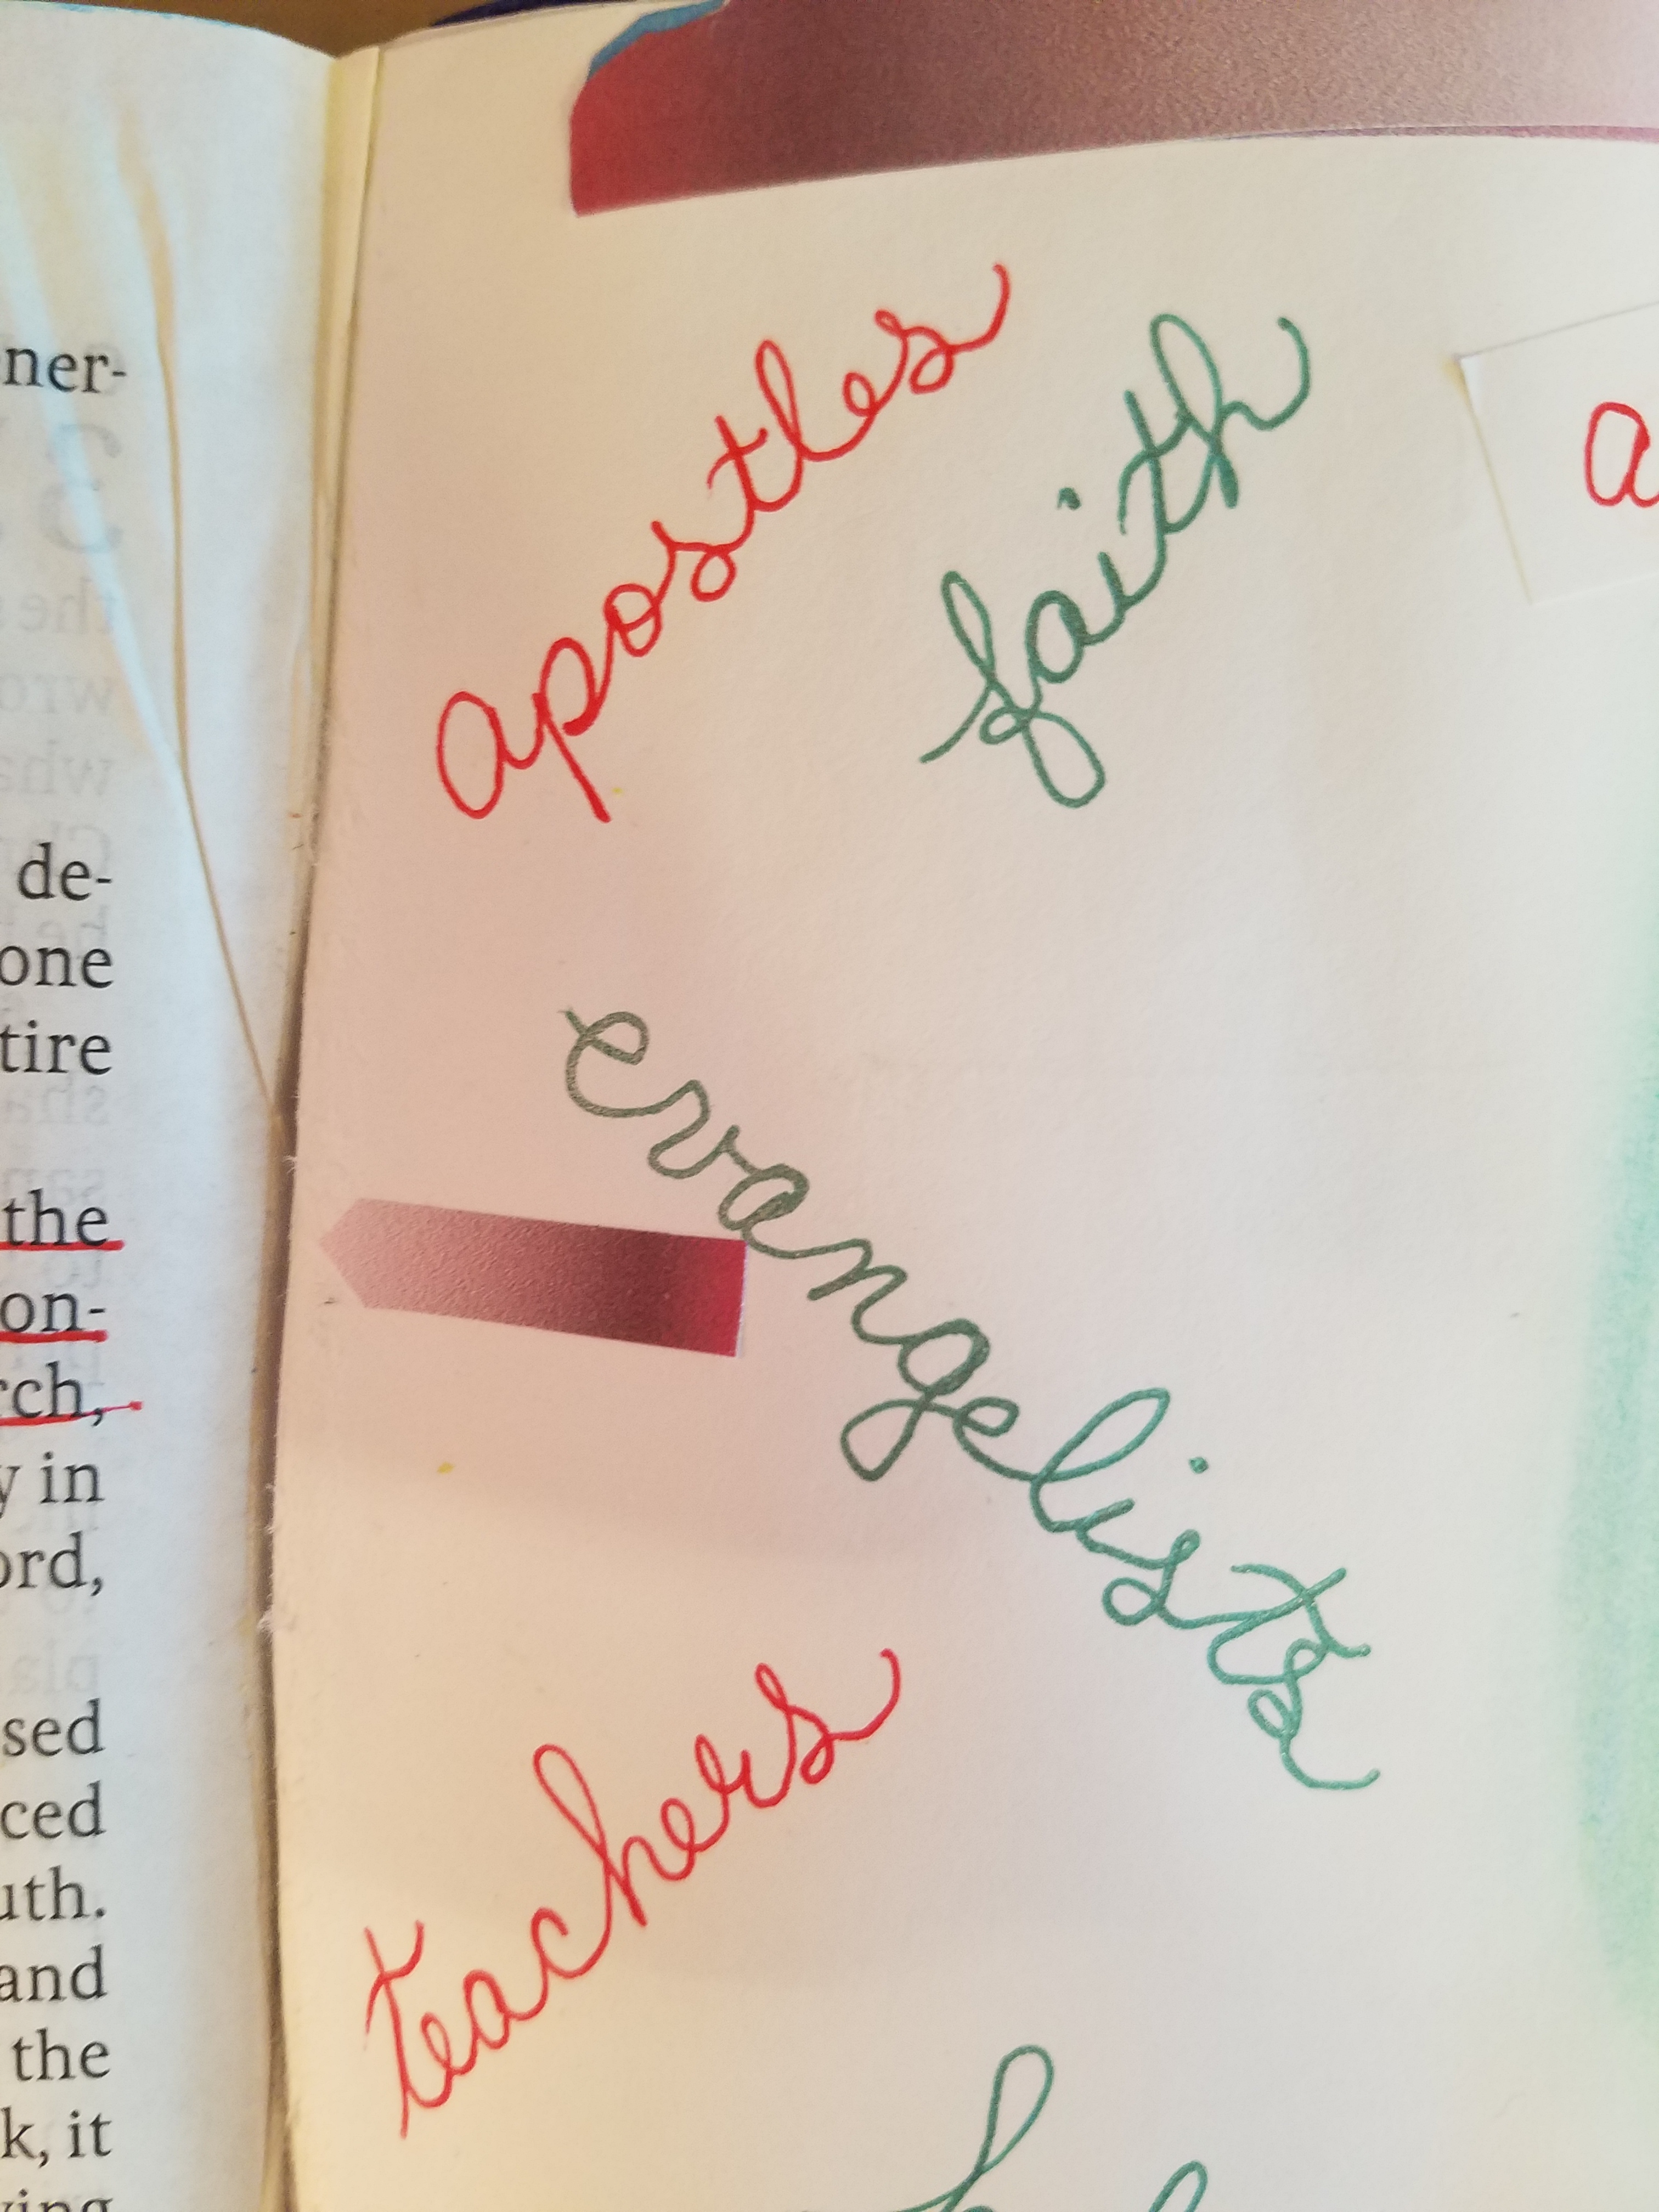 ner-
de-
one
tire
the
on-
rch,
y in
ord,
sed
ced
uth.
and
the
k, it
apostles
faith
a
evangelists
teachers